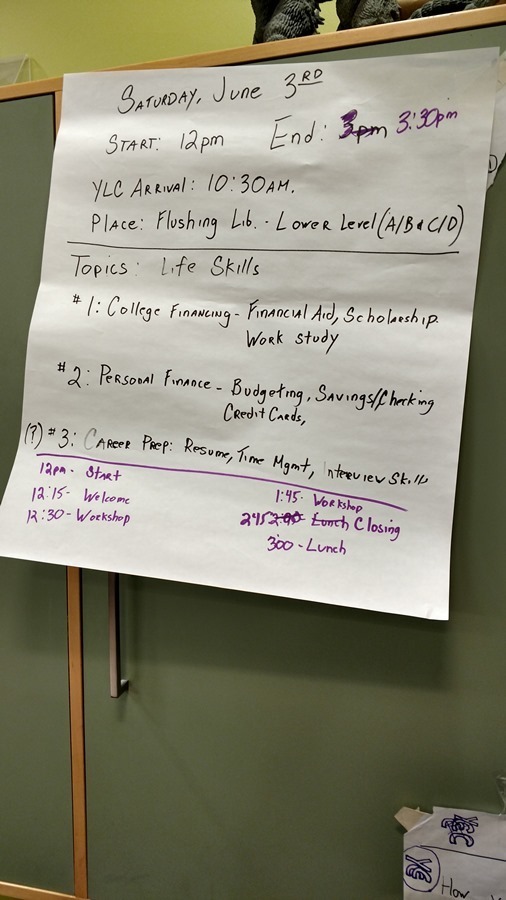 Saturday, June 3RD
Start: 12pm End: 3pm 3:30pm
YLC Arrival: 10:30AM.
Place: Flushing Lib. - Lower Level (A/B & C/D)
Topics: Life Skills
#1: College Financing - Financial Aid, Scholarship
Work study
#2: Personal Finance - Budgeting, Savings/Checking
Credit Cards,
(?) #3: Career Prep: Resume, Time Mgmt, Interview Skills
12pm - Start
12:15 - Welcome
12:30 - Workshop
1:45 - Workshop
245 2:00 - Lunch Closing
300 - Lunch
How